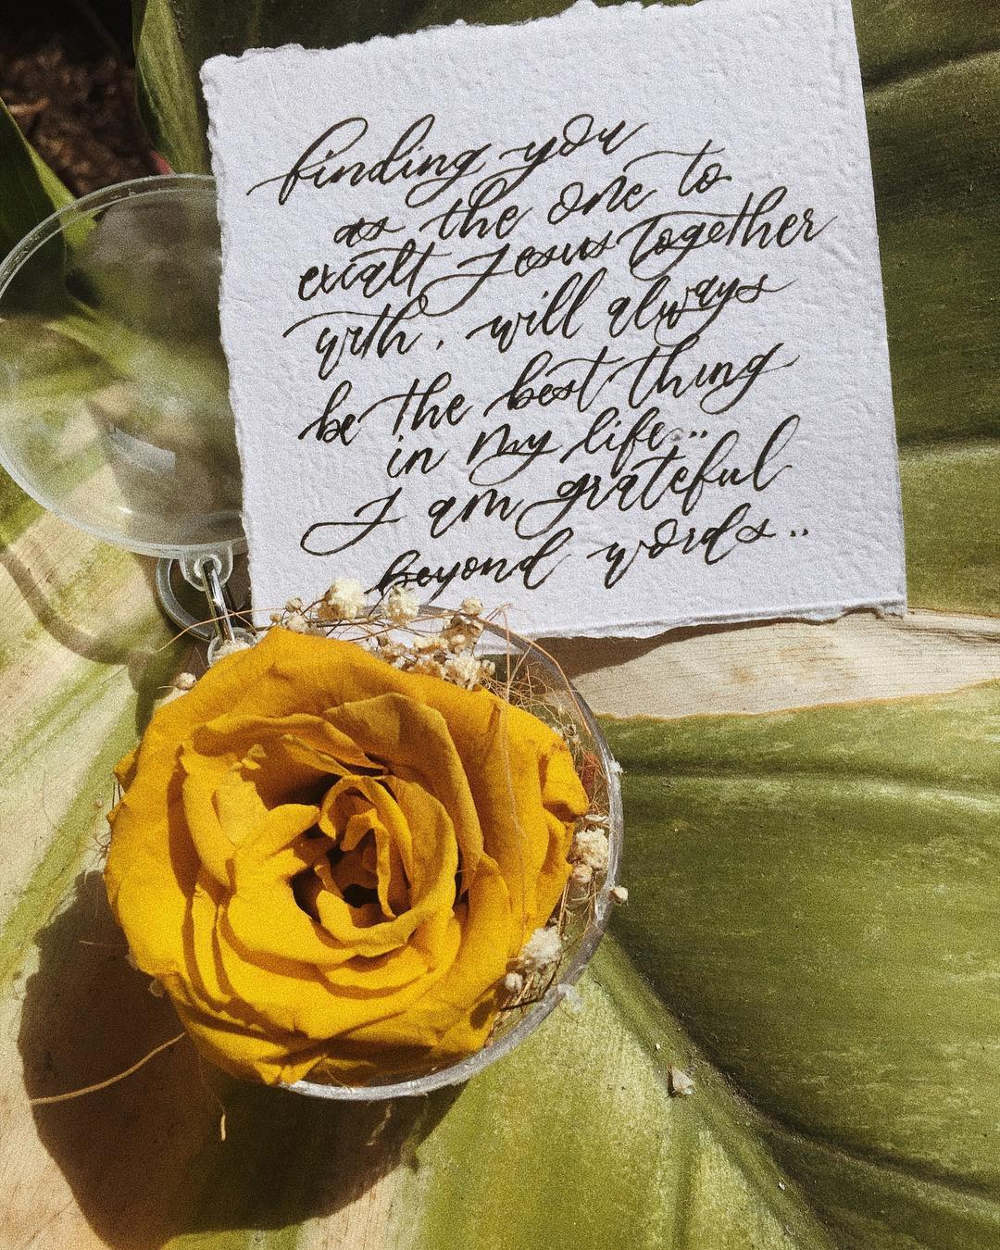 finding you
as the one to
exalt Jesus together
with, will always
be the best thing
in my life...
I am grateful
beyond words..